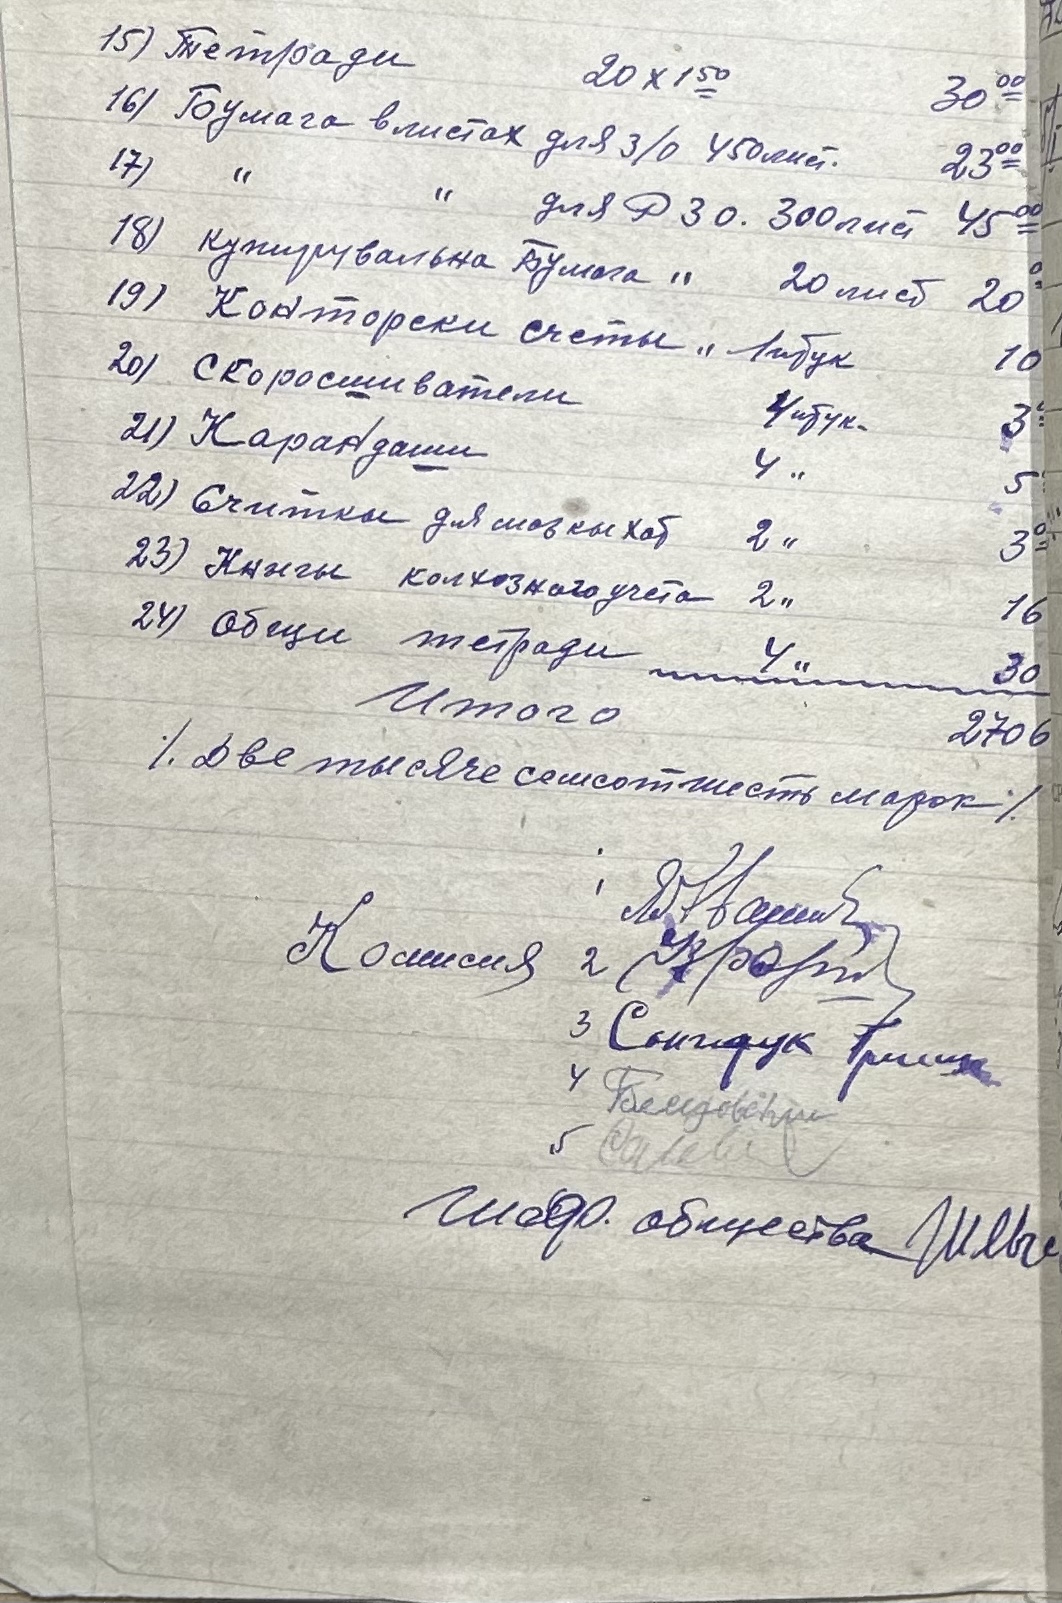 15) Тетради 20 x 1 50 30 00
16) Бумага в листах для З/О 450 лист. 23 00
17) " " для РЗО. 300 лист 45 00
18) купирувальна Бумага " 20 лист 20
19) Конторски счеты " 1 штук 10
20) Скоросшиватели 4 штук. 3
21) Карандаши 4 " 5
22) Считки для 2 " 3
23) Книгы колхозного учета 2 " 16
24) Общи тетради 4 " 30
Итого 2706
/. Две тысяче семсотшесть марок /.
1
Комисия 2
3
4
5
общества